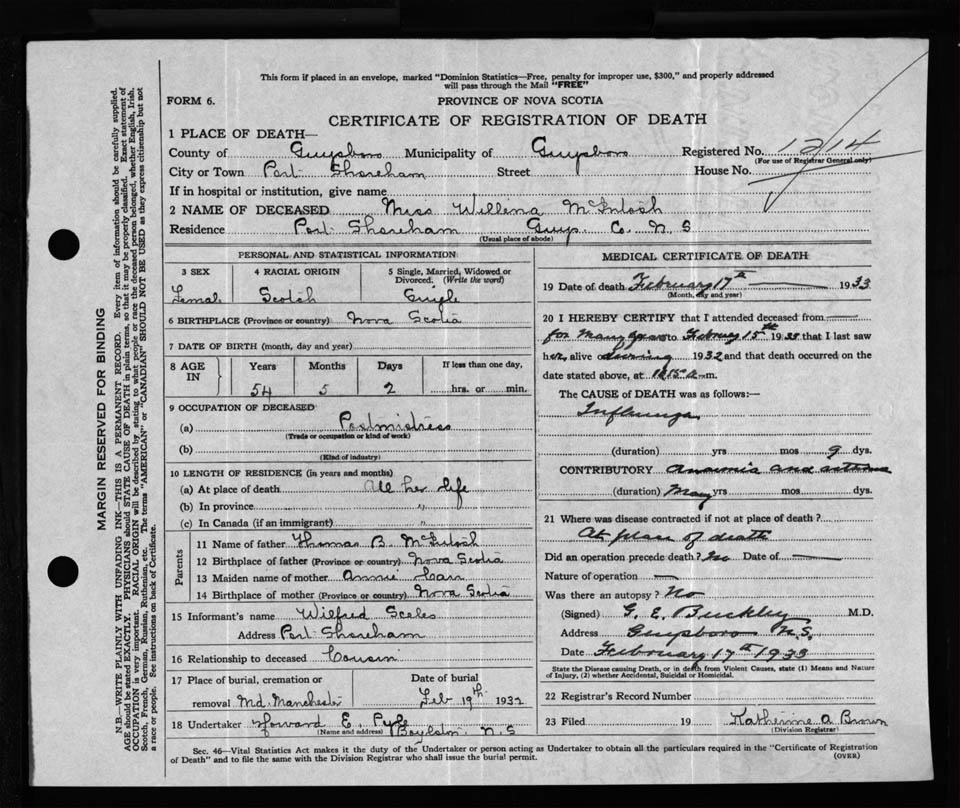 This form if placed in an envelope, marked "Dominion Statistics—Free, penalty for improper use, $300," and properly addressed
will pass through the Mail "FREE"
FORM 6.
PROVINCE OF NOVA SCOTIA
CERTIFICATE OF REGISTRATION OF DEATH
1 PLACE OF DEATH—
County of Guysboro Municipality of Guysboro Registered No. 1214
(For use of Registrar General only)
City or Town Port Shoreham Street House No.
If in hospital or institution, give name
2 NAME OF DECEASED Miss Willena McIntosh
Residence Port Shoreham Guys. Co. N S
(Usual place of abode)
PERSONAL AND STATISTICAL INFORMATION
3 SEX 4 RACIAL ORIGIN 5 Single, Married, Widowed or
Divorced. (Write the word)
Female Scotch Single
6 BIRTHPLACE (Province or country) Nova Scotia
7 DATE OF BIRTH (month, day and year)
8 AGE
IN
Years Months Days If less than one day,
54 5 2 hrs. or min.
9 OCCUPATION OF DECEASED
(a) Postmistress
(Trade or occupation or kind of work)
(b)
(Kind of industry)
10 LENGTH OF RESIDENCE (in years and months)
(a) At place of death All her life
(b) In province "
(c) In Canada (if an immigrant) "
Parents
11 Name of father Thomas B. McIntosh
12 Birthplace of father (Province or country) Nova Scotia
13 Maiden name of mother Annie
14 Birthplace of mother (Province or country) Nova Scotia
15 Informant's name Wilfred Scales
Address Port Shoreham
16 Relationship to deceased Cousin
17 Place of burial, cremation or Date of burial
removal Md. Manchester Feb 19th 1932
18 Undertaker Howard E. Pyle
(Name and address) Boylston N. S
MEDICAL CERTIFICATE OF DEATH
19 Date of death February 17th 1933
(Month, day and year)
20 I HEREBY CERTIFY that I attended deceased from
for many years to February 15th 1933 that I last saw
her alive o during 1932 and that death occurred on
date stated above, at a m.
The CAUSE of DEATH was as follows:—
Influenza
(duration) yrs mos 9 dys.
CONTRIBUTORY Anaemia and asthma
(duration) Many yrs mos. dys.
21 Where was disease contracted if not at place of death?
At place of death
Did an operation precede death? No Date of
Nature of operation
Was there an autopsy? No
(Signed) G. E. Buckley M.D.
Address Guysboro N.S.
Date February 17th 1933
State the Disease causing Death, or in death from Violent Causes, state (1) Means and Nature
of Injury, (2) whether Accidental, Suicidal or Homicidal.
22 Registrar's Record Number
23 Filed 19 Katherine A Brown
(Division Registrar)
Sec. 46—Vital Statistics Act makes it the duty of the Undertaker or person acting as Undertaker to obtain all the particulars required in the "Certificate of Registration
of Death" and to file the same with the Division Registrar who shall issue the burial permit.
(OVER)
MARGIN RESERVED FOR BINDING
N.B.—WRITE PLAINLY WITH UNFADING INK—THIS IS A PERMANENT RECORD. Every item of information should be carefully supplied.
AGE should be stated EXACTLY. PHYSICIANS should STATE CAUSE OF DEATH in plain terms, so that it may be properly classified. Exact statement of
OCCUPATION is very important. RACIAL ORIGIN will be described by stating to what people or race the deceased person belonged, whether English, Irish,
Scotch, French, German, Russian, Ruthenian, etc. The terms "AMERICAN" or "CANADIAN" SHOULD NOT BE USED as they express citizenship but not
a race or people. See instructions on back of Certificate.